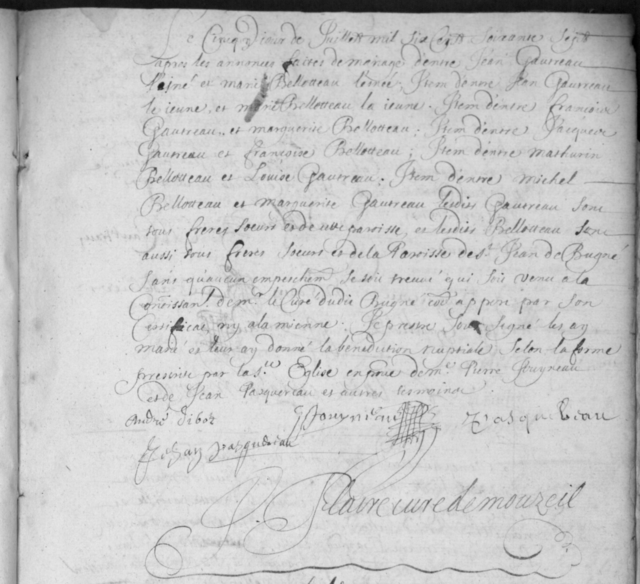 Le Cinqe Jour de Juillett mil six Centz soixante sept
apres les annonces faites de mariage dentre Jean Gavreau
l'aisné et marie Bellotteau l'aisnée. Item dentre Jean Gavreau
le jeune et marie Bellotteau la jeune. Item dentre francois
Gavereau et marguerite Bellotteau; Item dentre Jacques
Gavereau et francoise Bellotteau; Item dentre mathurin
Bellotteau et Louise Gavereau. Item dentre michel
Bellotteau et marguerite Gavereau lesdits Gavereau sont
tous freres soeurs et de parroisse, et lesdits Bellotteau sont
aussi tous freres soeurs et de la Paroisse de St Jean de Bugné
sans qu'aucun empeschemt se soit treuvé qui soit venu a la
Conoissance de mr le Curé dudit Bugné appert par son
Certificat ny a la mienne. Je prestre soub signé les ay
marié et leur ay donné la benediction nuptiale selon la forme
prescrite par la Ste Eglise de mr Pierre Jouyneau
et de Jean Pasquereau et autres termoins
André
Jouyneau
Pasquereau
Jehan pasquereau
curé de mouzeil